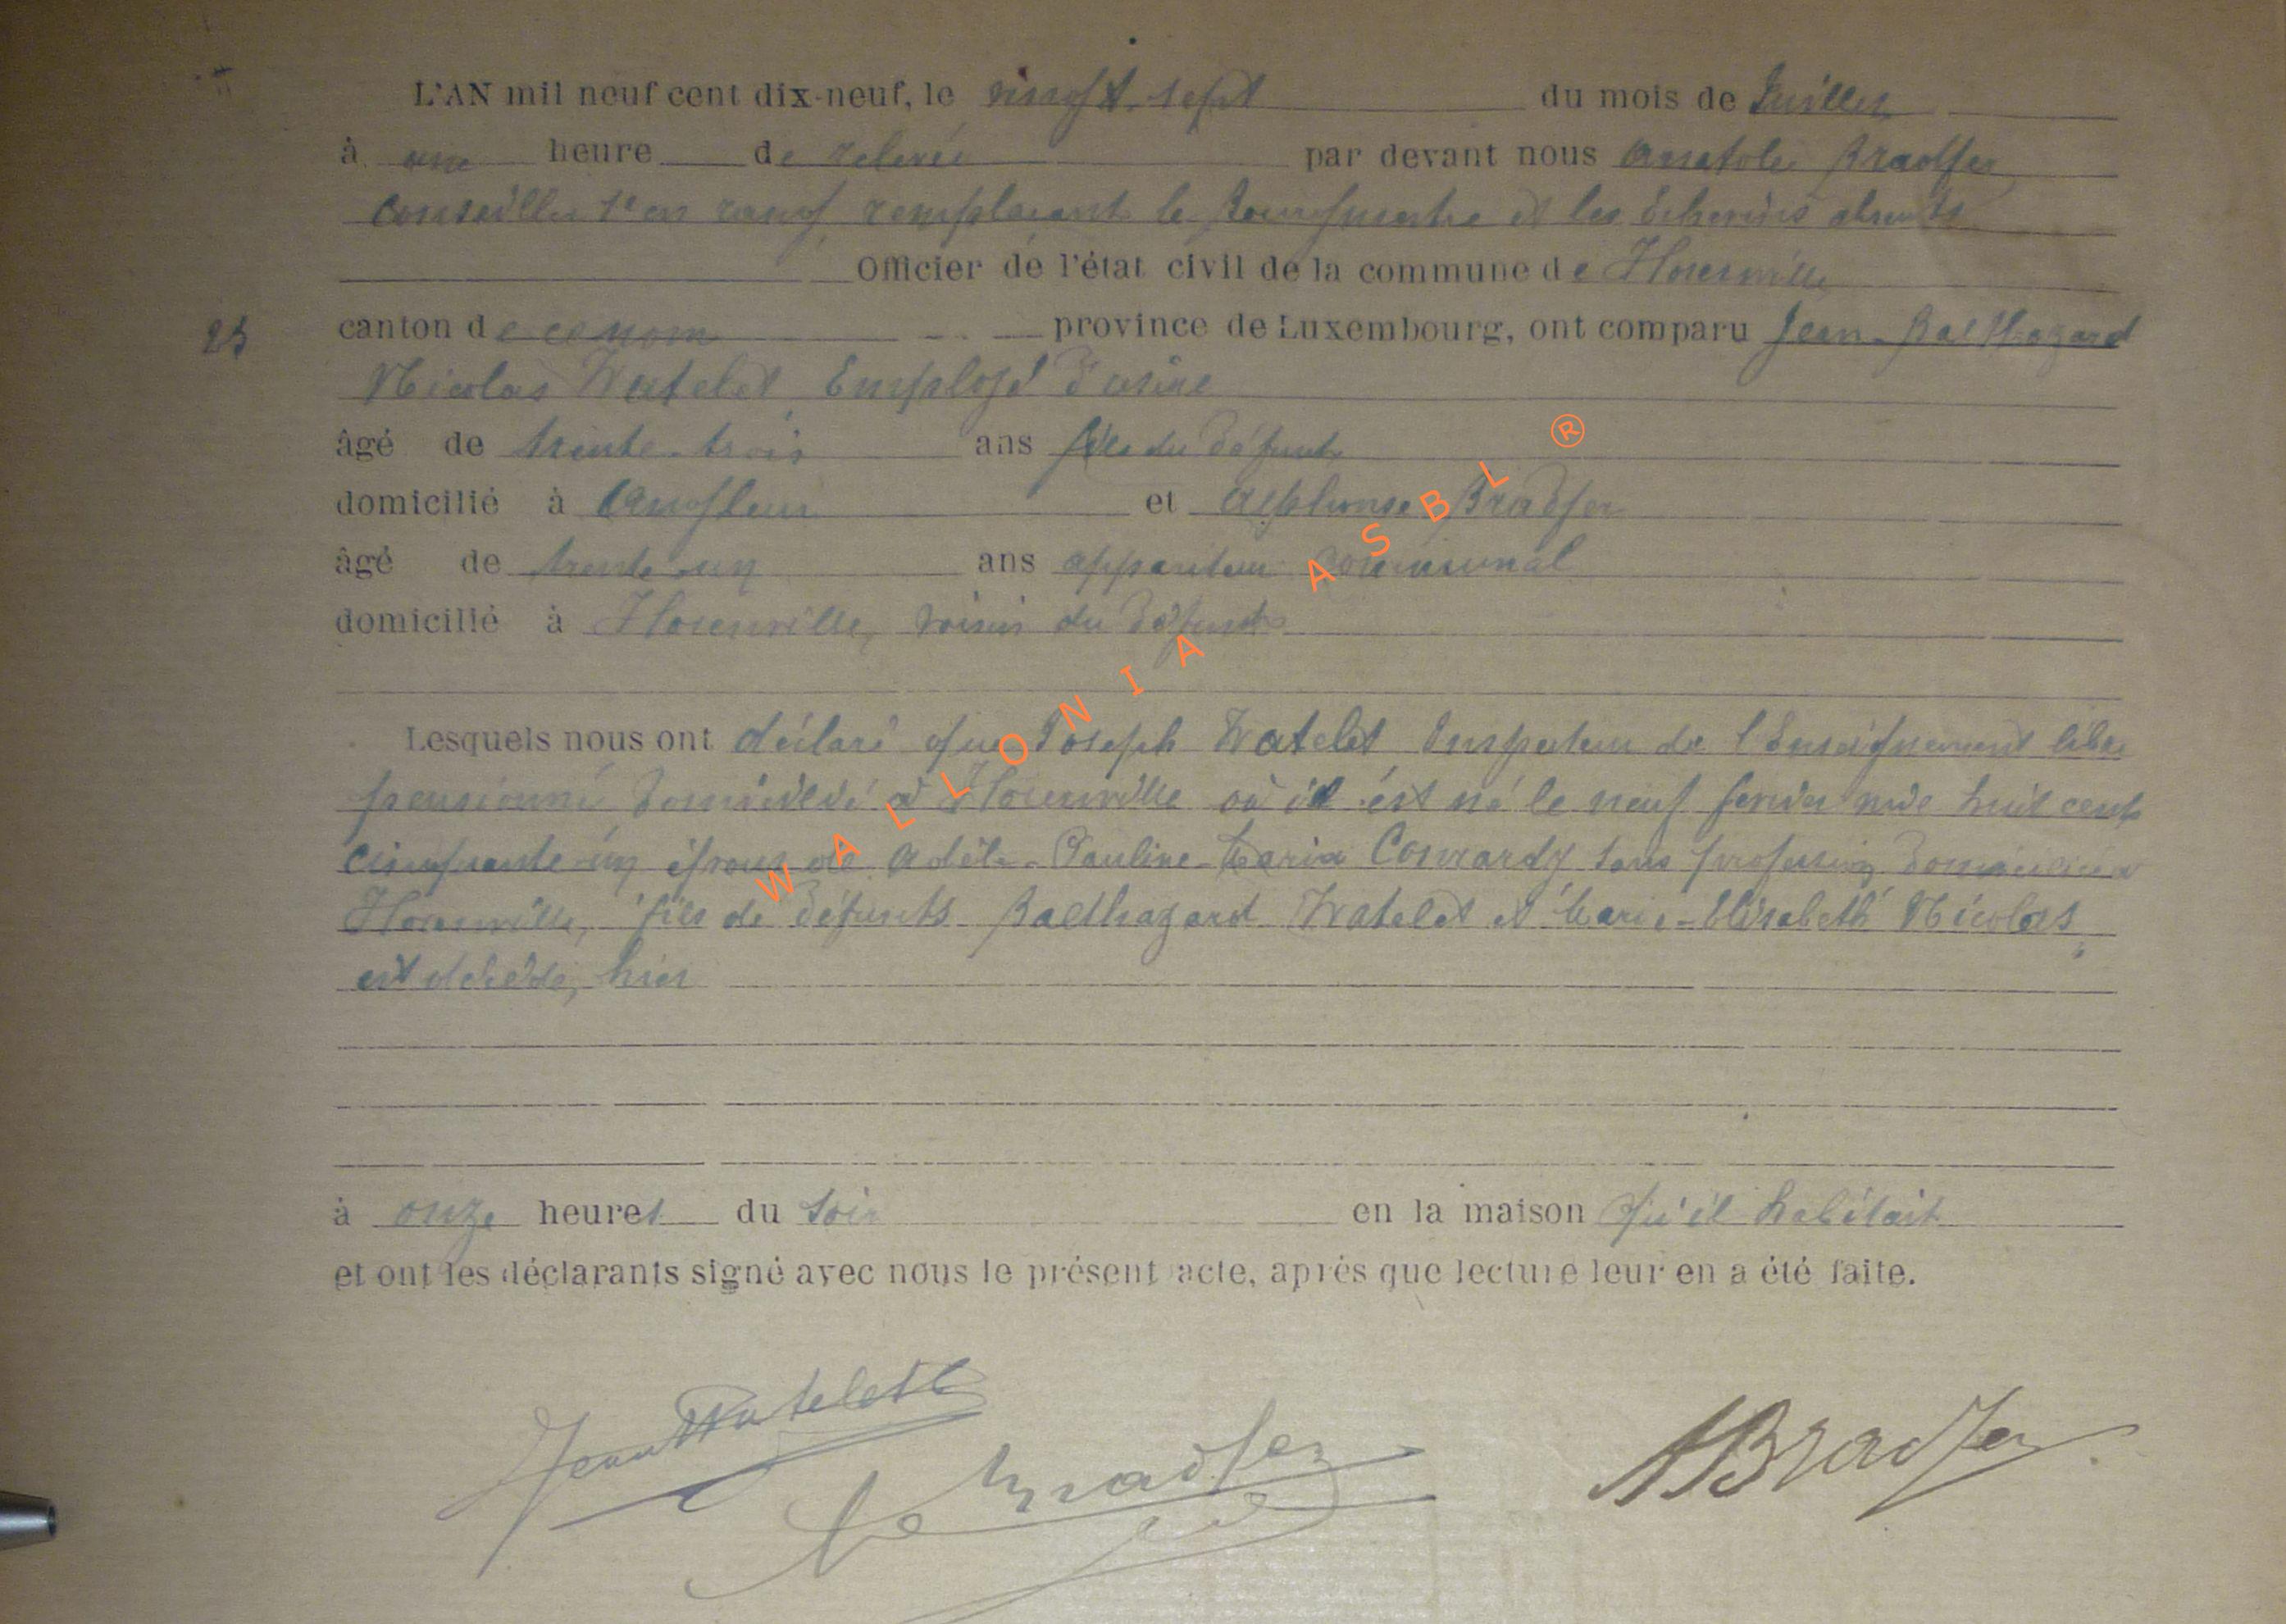 L'AN mil neuf cent dix-neuf, le vingt-sept du mois de Juillet
à une heure de relevée par devant nous Anatole Bradfer
Conseiller 1er en rang remplaçant le Bourgmestre et les Echevins absents
Officier de l'état civil de la commune de Florenville
25
canton de ce nom province de Luxembourg, ont comparu Jean-Balthazard
Nicolas Watelet Employé d'usine
âgé de trente-trois ans fils du défunt
domicilié à Angleur et Alphonse Bradfer
âgé de trente-un ans appariteur communal
domicilié à Florenville, voisin du défunt
Lesquels nous ont déclaré que Joseph Watelet Inspecteur de l'Enseignement libre
pensionné domicilié à Florenville où il est né le neuf février mil huit cent
cinquante-un époux de Adèle-Pauline-Maria Conrardy sans profession domiciliée à
Florenville, fils de défunts Balthazard Watelet et Marie-Elisabeth Nicolas
est décédé, hier
à onze heures du soir en la maison qu'il habitait
et ont les déclarants signé avec nous le présent acte, après que lecture leur en a été faite.
Jean Watelet
Bradfer
ABradfer
WALLONIA ASBL ®